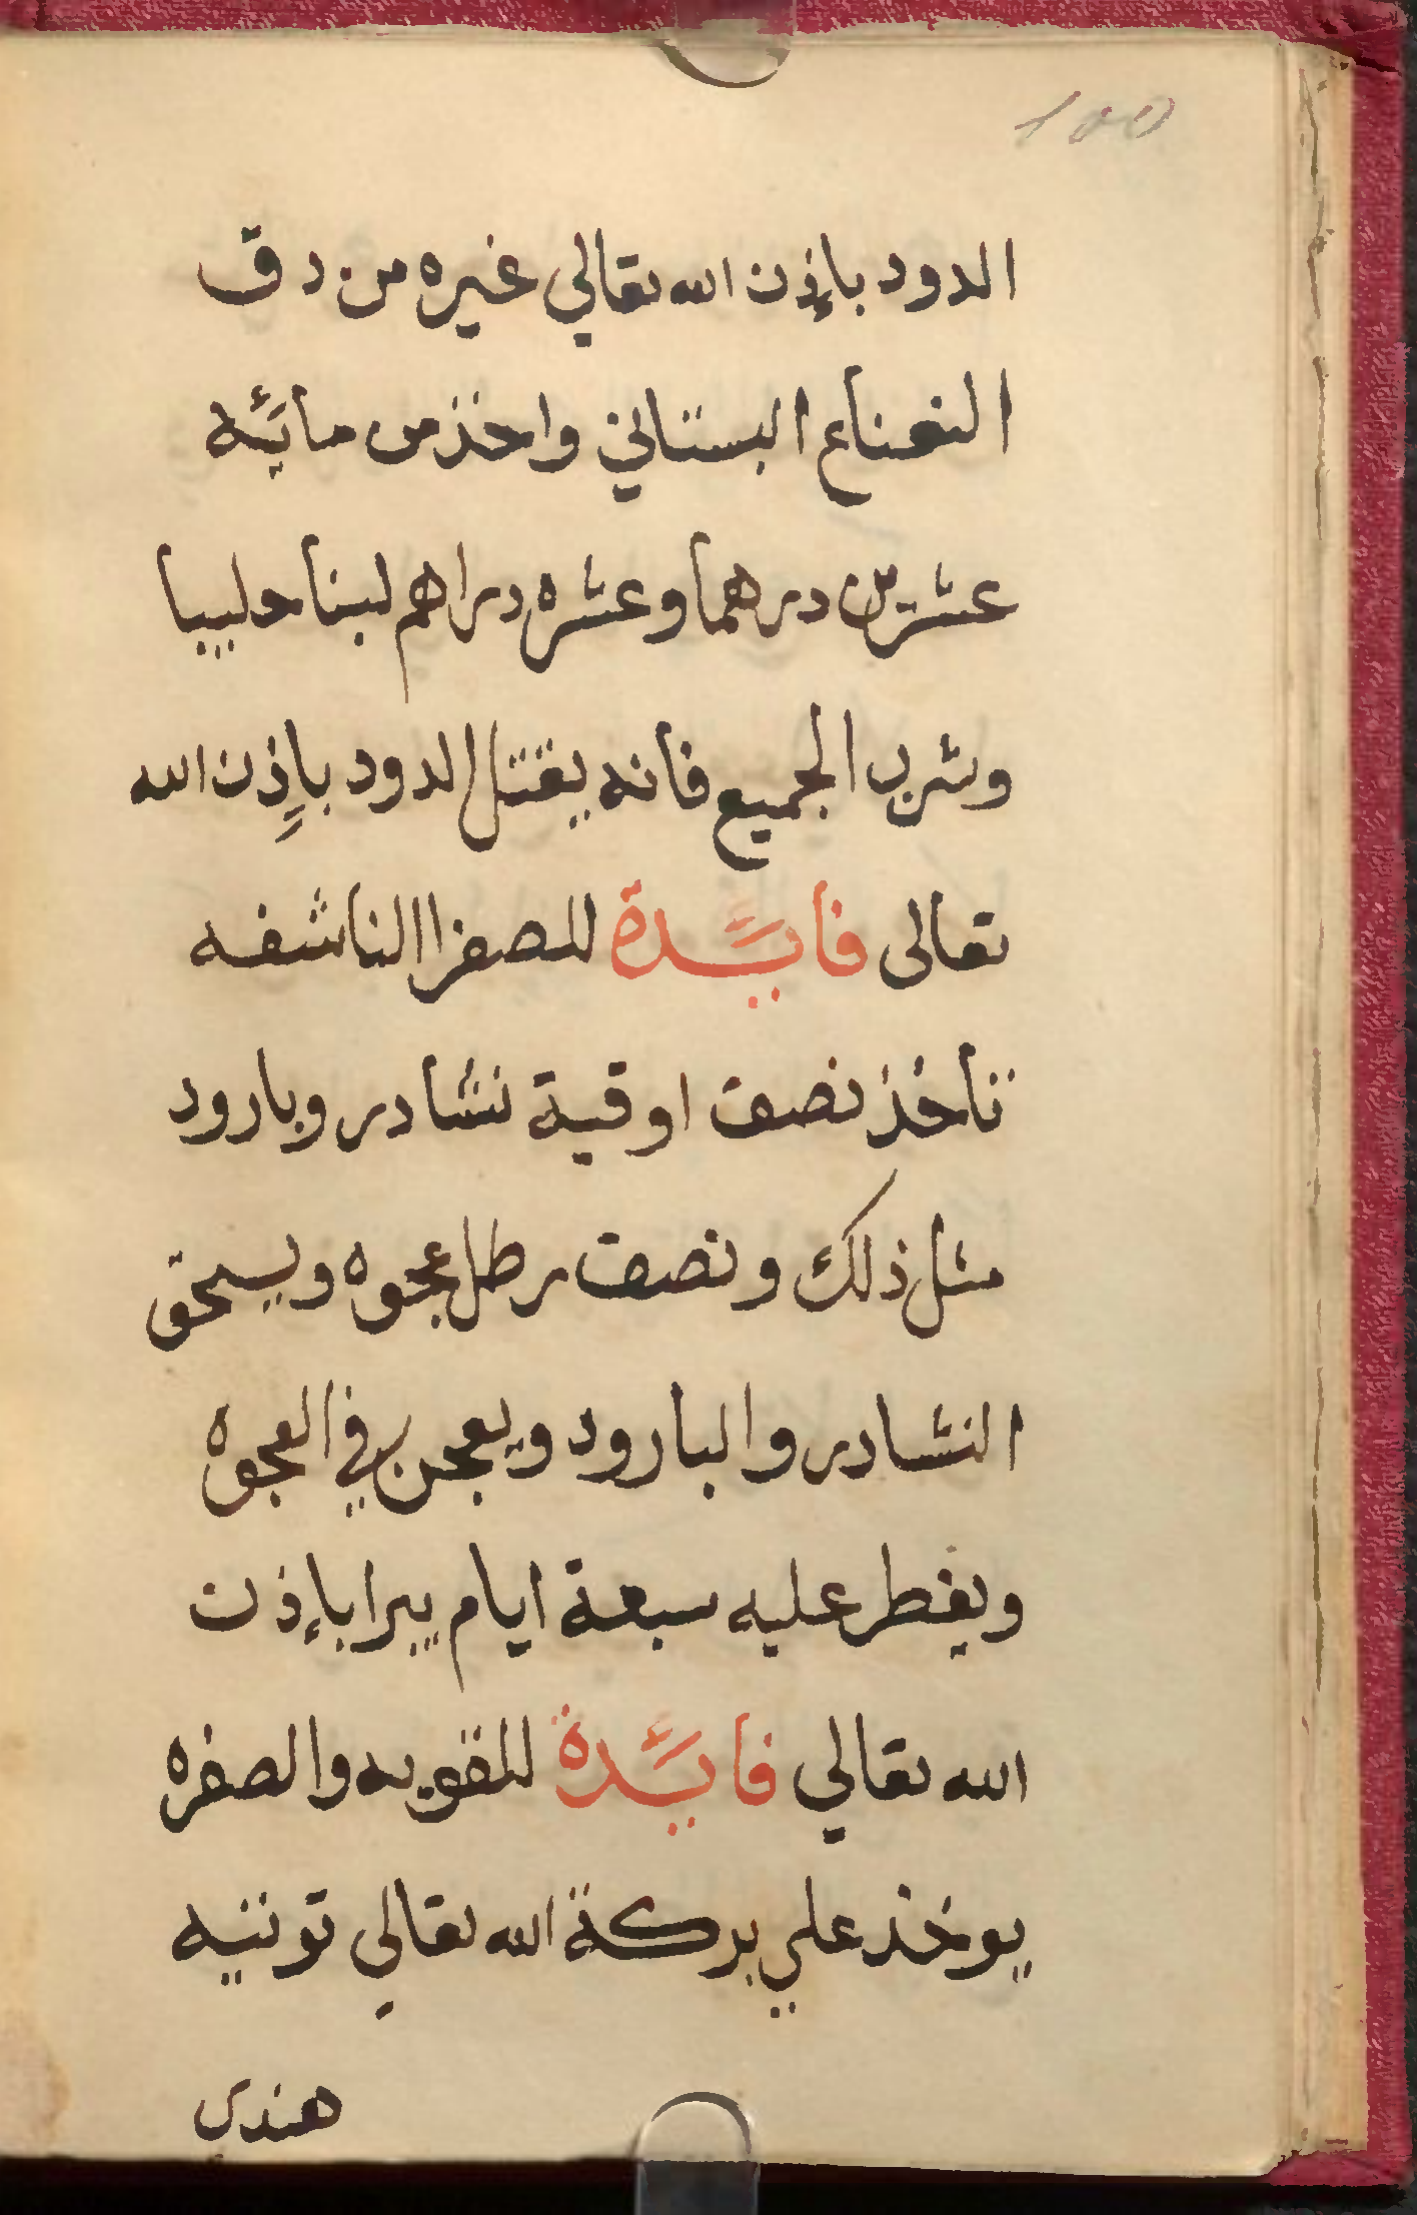 100
الدود بإذن الله تعالي غيره من دق
النعناع البستاني واخذ من مائيه
عشرين درهما وعشره دراهم لبنا حليبا
وشرب الجميع فانه يقتل الدود بإذن الله
تعالى فايئدة للصفرا الناشفه
تاخذ نصف اوقية نشادر وبارود
مثل ذلك ونصف رطل عجوه ويسحق
النشادر والبارود ويعجن في العجوه
ويفطر عليه سبعة ايام يبرا بإذن
الله تعالي فايئدة للمقويه والصفره
يوخذ علي بركة الله تعالي توتيه
هندي